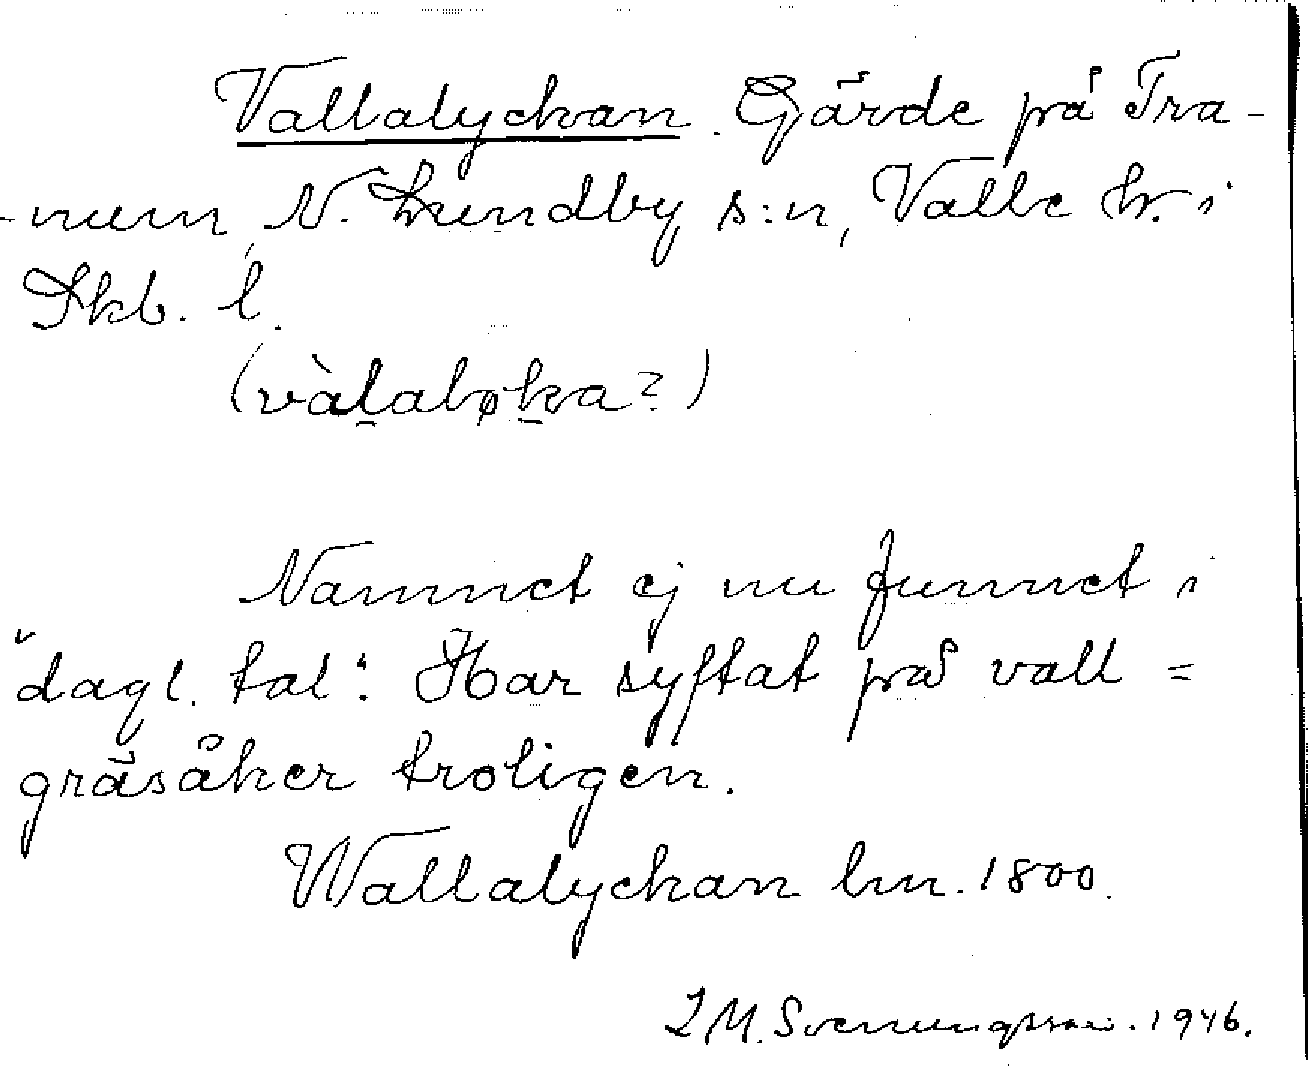 Vallalyckan. Gärde på Tra-
-num, N. Lundby s:n, Valle hr. i
Skb. l.
(vàlaløka?)
Namnet ej nu funnet i
dagl. tal. Har syftat på vall =
gräsåker troligen.
Wallalyckan hn. 1800.
I M. Svenungsson. 1946.